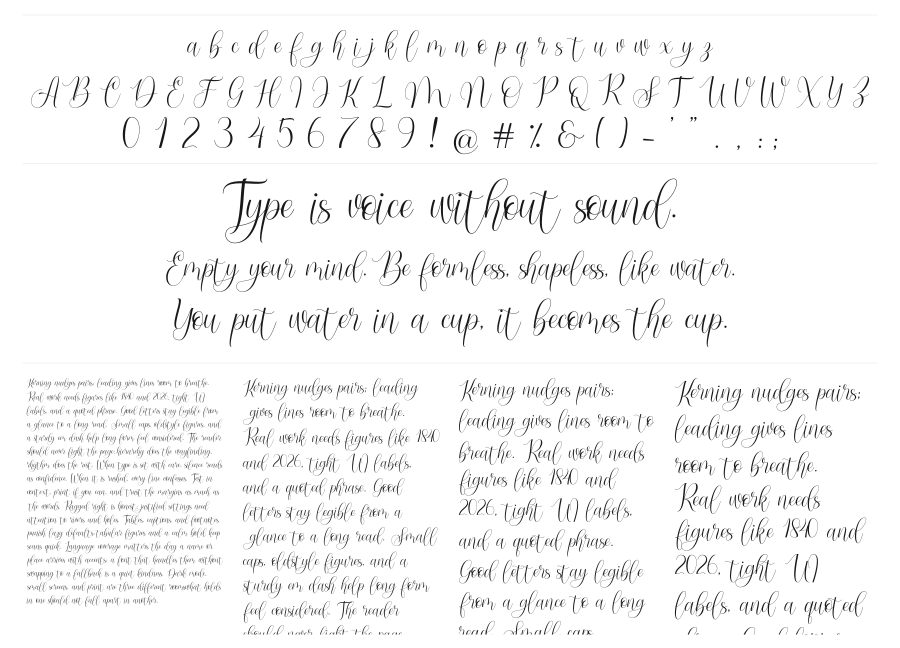 a b c d e f g h i j k l m n o p q r s t u v w x y z
A B C D E F G H I J K L M N O P Q R S T U V W X Y Z
0 1 2 3 4 5 6 7 8 9 ! @ # % & ( ) - ' " . , : ;
Type is voice without sound.
Empty your mind. Be formless, shapeless, like water.
You put water in a cup, it becomes the cup.
Kerning nudges pairs; leading gives lines room to breathe.
Real work needs figures like 1840 and 2026, tight UI
labels, and a quoted phrase. Good letters stay legible from
a glance to a long read. Small caps, oldstyle figures, and
a sturdy em dash help long form feel considered. The reader
should never fight the page hierarchy does the wayfinding,
rhythm does the rest. When type is set with care silence reads
as confidence. When it is rushed, every line confesses. Test in
context, print if you can, and trust the margins as much as
the words. Ragged right is honest, justified settings and
attention to rivers and holes. Tables captions and footnotes
punish lazy defaults tabular figures and a calm bold keep
scans quick. Language coverage matters the day a name or
place arrives with accents a font that handles them without
swapping to a fallback is a quiet kindness. Dark mode,
small screens, and print are three different rooms what holds
in one should not fall apart in another.
Kerning nudges pairs; leading
gives lines room to breathe.
Real work needs figures like 1840
and 2026, tight UI labels,
and a quoted phrase. Good
letters stay legible from a
glance to a long read. Small
caps, oldstyle figures, and a
sturdy em dash help long form
feel considered. The reader
should never fight the page
Kerning nudges pairs;
leading gives lines room to
breathe. Real work needs
figures like 1840 and
2026, tight UI labels,
and a quoted phrase.
Good letters stay legible
from a glance to a long
read. Small caps,
Kerning nudges pairs;
leading gives lines
room to breathe.
Real work needs
figures like 1840 and
2026, tight UI
labels, and a quoted